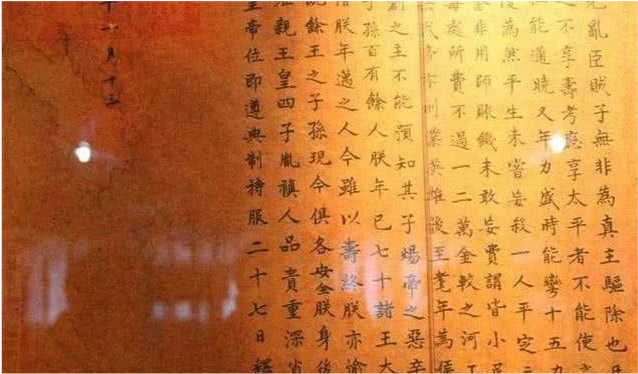 亂臣賊子無非為真主驅除也
不享壽考應享太平者不能使
能通曉又年力盛時能彎十五
為然平生未嘗妄殺一人平定
非用師賑饑未敢妄費謂皆小
每處所費不過一二萬金較之河
帝亦刱業英雄後至耄年為侯
創之主不能預知其子煬帝之惡卒
子孫百有餘人朕年已七十諸王大
惜朕年邁之人今雖以壽終朕亦愉
餘王之子孫現今俱各安全朕身後
親王皇四子胤禛人品貴重深肖
皇帝位即遵典制持服二十七日釋
十一月十三